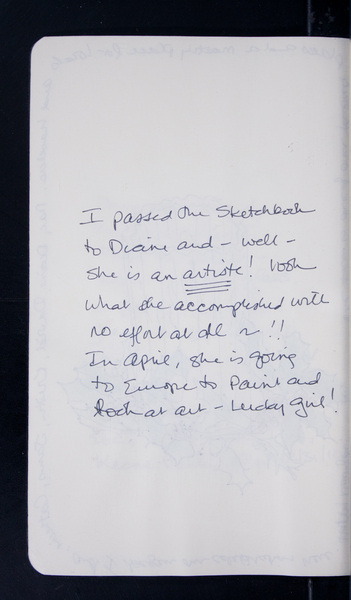 I passed the Sketchbook
to Diane and - well -
she is an artiste! look
what she accomplished with
no effort at all ~ !!
In April, she is going
to Europe to Paint and
look at art - Lucky girl!